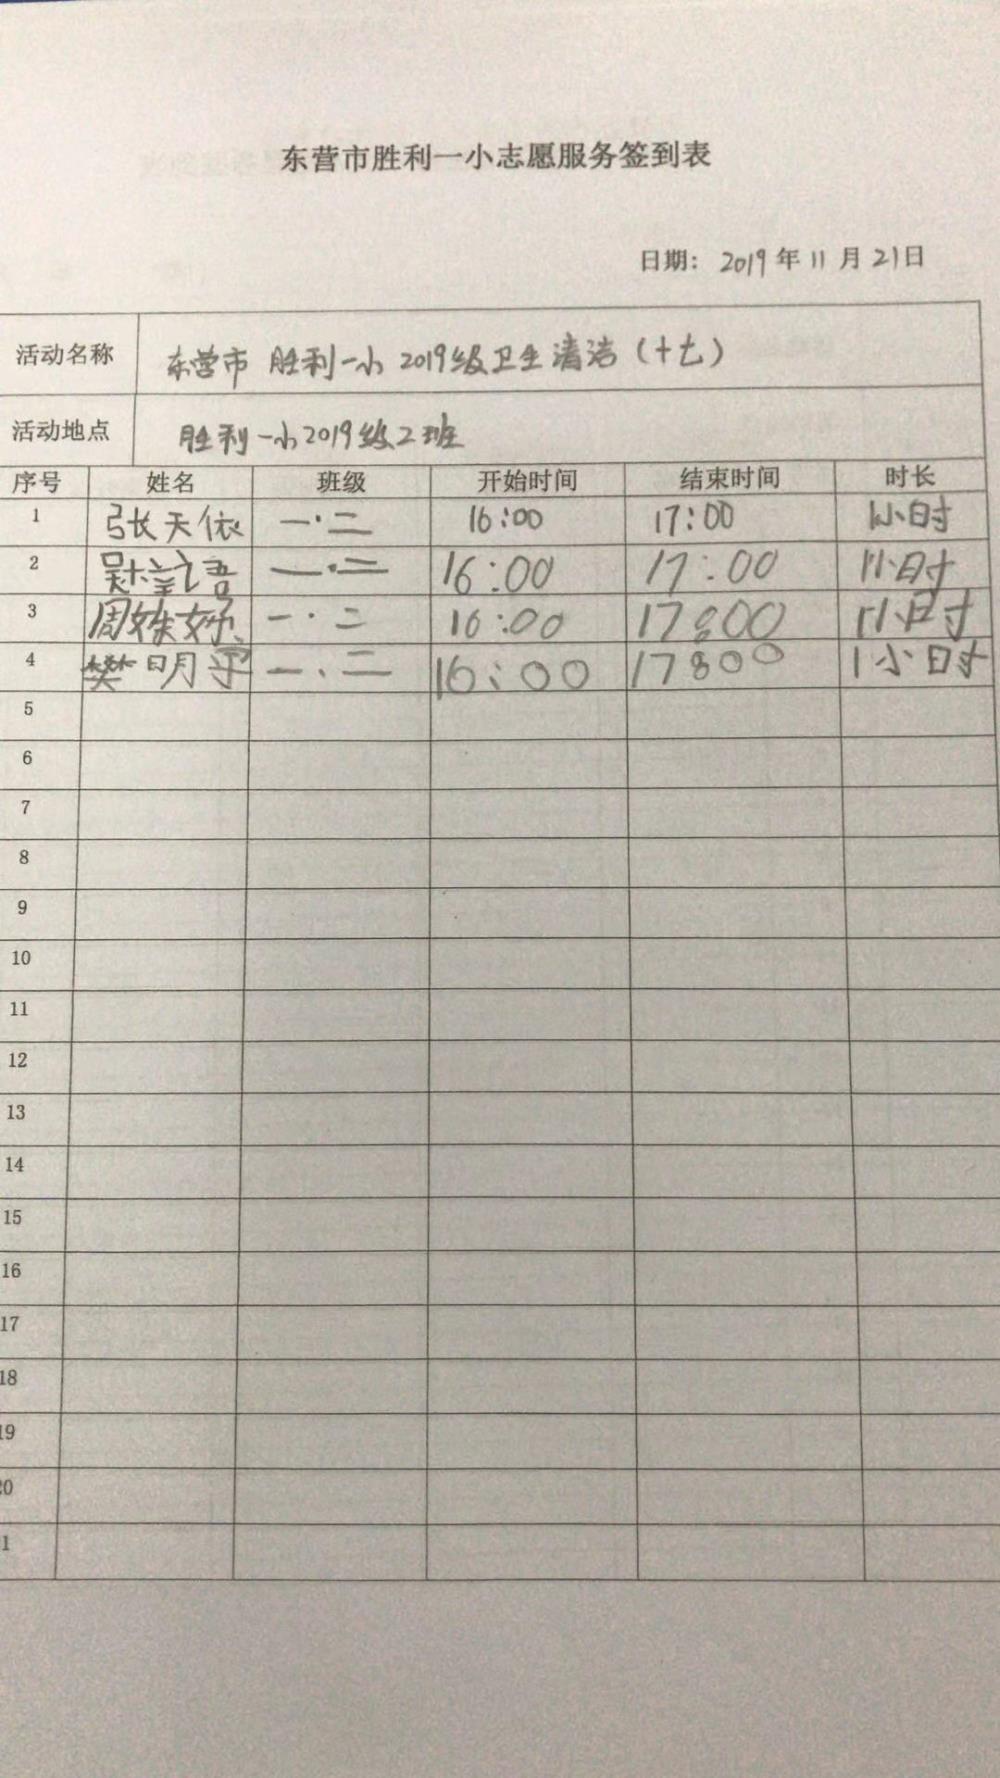 东营市胜利一小志愿服务签到表
日期：2019年11月21日
活动名称 东营市胜利一小2019级卫生清洁（十七）
活动地点 胜利一小2019级2班
序号 姓名 班级 开始时间 结束时间 时长
1 张天依 一·二 16:00 17:00 1小时
2 一·二 16:00 17:00 1小时
3 周姝妤 一·二 16:00 17:00 1小时
4 樊明宇 一·二 16:00 17:00 1小时
5
6
7
8
9
10
11
12
13
14
15
16
17
18
19
20
1